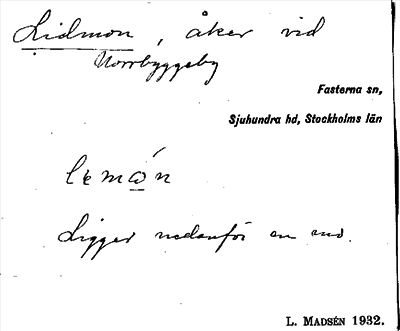 Lidmon, åker vid
Norrbyggeby
Fasterna sn,
Sjuhundra hd, Stockholms län
Ligger nedanför en
L. MADSÉN 1932.